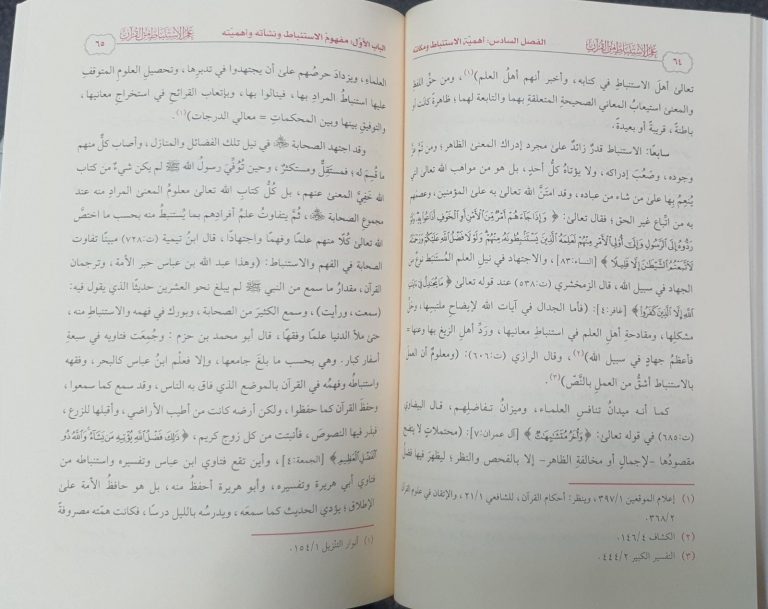 ٦٤
الفصل السادس: أهمية الاستنباط ومكانته
علم الاستنباط من القرآن
تعالى أهلَ الاستنباطِ في كتابه، وأخبر أنهم أهلُ العلم)(١)، ومن حقِّ اللفظ
والمعنى استيعابُ المعاني الصحيحةِ المتعلقةِ بهما والتابعة لهما؛ ظاهرةً كانت أو
باطنةً، قريبةً أو بعيدةً.
سابعًا: الاستنباط قدرٌ زائدٌ على مجرد إدراكِ المعنى الظاهر؛ ومن ثَمَّ عَزَّ
وجوده، وصَعُبَ إدراكه، ولا يؤتاهُ كلُّ أحدٍ، بل هو من مواهب الله تعالى التي
يُنعِمُ بها على من شاء من عباده، وقد امتَنَّ الله تعالى به على المؤمنين، وعصمهم
به من اتِّباع غير الحق؛ فقال تعالى: ﴿ وَإِذَا جَاءَهُمْ أَمْرٌ مِنَ الْأَمْنِ أَوِ الْخَوْفِ أَذَاعُوا بِهِ وَلَوْ
رَدُّوهُ إِلَى الرَّسُولِ وَإِلَى أُولِي الْأَمْرِ مِنْهُمْ لَعَلِمَهُ الَّذِينَ يَسْتَنْبِطُونَهُ مِنْهُمْ وَلَوْلَا فَضْلُ اللَّهِ عَلَيْكُمْ وَرَحْمَتُهُ
لَاتَّبَعْتُمُ الشَّيْطَانَ إِلَّا قَلِيلًا ﴾ [النساء:٨٣]، والاجتهاد في نيل العلم المُستَنبَط نوعٌ من
الجهاد في سبيل الله، قال الزمخشري (ت:٥٣٨) عند قوله تعالى ﴿ مَا يُجَادِلُ فِي آيَاتِ
اللَّهِ إِلَّا الَّذِينَ كَفَرُوا ﴾ [غافر:٤]: (فأما الجدال في آيات الله لإيضاحِ ملتبسِها، وحلِّ
مشكلها، ومقادحةِ أهل العلم في استنباط معانيها، وردِّ أهلِ الزيغ بها وعنها=
فأعظمُ جهادٍ في سبيل الله)(٢)، وقال الرازي (ت:٦٠٦): (ومعلومٌ أن العمل
بالاستنباط أشقُّ من العملِ بالنَّصّ)(٣).
كما أنه ميدانُ تنافسِ العلماء، وميزانُ تفاضلِهم، قال البيضاوي
(ت:٦٨٥) في قوله تعالى: ﴿ وَأُخَرُ مُتَشَابِهَاتٌ ﴾ [آل عمران:٧]: (محتملاتٌ لا يتضح
مقصودُها –لإجمالٍ أو مخالفةِ الظاهر– إلا بالفحص والنظر؛ ليظهرَ فيها فضلُ
(١) إعلام الموقعين ٣٩٧/١، وينظر: أحكام القرآن، للشافعي ٢١/١، والإتقان في علوم القرآن
٣٦٨/٢.
(٢) الكشاف ١٤٦/٤.
(٣) التفسير الكبير ٤٤٤/٢.
علم الاستنباط من القرآن
الباب الأوّل: مفهومُ الاستنباط ونشأته وأهميّته
٦٥
العلماءِ، ويزدادَ حرصُهم على أن يجتهدوا في تدبرِها، وتحصيلِ العلومِ المتوقفِ
عليها استنباطُ المرادِ بها، فينالوا بها، وبإتعابِ القرائحِ في استخراجِ معانيها،
والتوفيقِ بينها وبين المحكماتِ = معالي الدرجات)(١).
وقد اجتهد الصحابة ﷺ في نيل تلك الفضائلِ والمنازلِ، وأصاب كلٌّ منهم
ما قُسِمَ له؛ فمستقلٌّ ومستكثرٌ، وحين تُوُفِّيَ رسولُ الله ﷺ لم يكن شيءٌ من كتاب
الله خَفِيَّ المعنى عنهم، بل كُلُّ كتابِ الله تعالى معلومُ المعنى المراد منه عند
مجموع الصحابة، ثُمَّ يتفاوتُ علمُ أفرادهم بما يُستنبطُ منه بحسب ما اختصَّ
الله تعالى كُلًّا منهم علمًا وفهمًا واجتهادًا، قال ابنُ تيمية (ت:٧٢٨) مبينًا تفاوت
الصحابة في الفهم والاستنباط: (وهذا عبد الله بن عباس حبر الأمة، وترجمان
القرآن، مقدارُ ما سمع من النبي ﷺ لم يبلغ نحو العشرين حديثًا الذي يقول فيه:
(سمعت، ورأيت)، وسمع الكثيرَ من الصحابة، وبورك في فهمه والاستنباط منه،
حتى ملأ الدنيا علمًا وفقهًا، قال أبو محمد بن حزم: وجُمِعَت فتاويه في سبعةِ
أسفار كبار. وهي بحسب ما بلغَ جامعها، وإلا فعلمُ ابنُ عباس كالبحر، وفقهه
واستنباطُه وفهمُه في القرآن بالموضع الذي فاق به الناس، وقد سمع كما سمعوا،
وحفظَ القرآن كما حفظوا، ولكن أرضه كانت من أطيب الأراضي، وأقبلها للزرع،
فبذر فيها النصوصَ، فأنبتت من كل زوج كريم، ﴿ ذَلِكَ فَضْلُ اللَّهِ يُؤْتِيهِ مَنْ يَشَاءُ وَاللَّهُ ذُو
الْفَضْلِ الْعَظِيمِ ﴾ [الجمعة:٤]، وأين تقع فتاوي ابن عباس وتفسيره واستنباطه من
فتاوي أبي هريرة وتفسيره، وأبو هريرة أحفظُ منه، بل هو حافظُ الأمة على
الإطلاق؛ يؤدي الحديث كما سمعَه، ويدرسُه بالليل درسًا، فكانت همّته مصروفةً
(١) أنوار التنزيل ١٥٤/١.